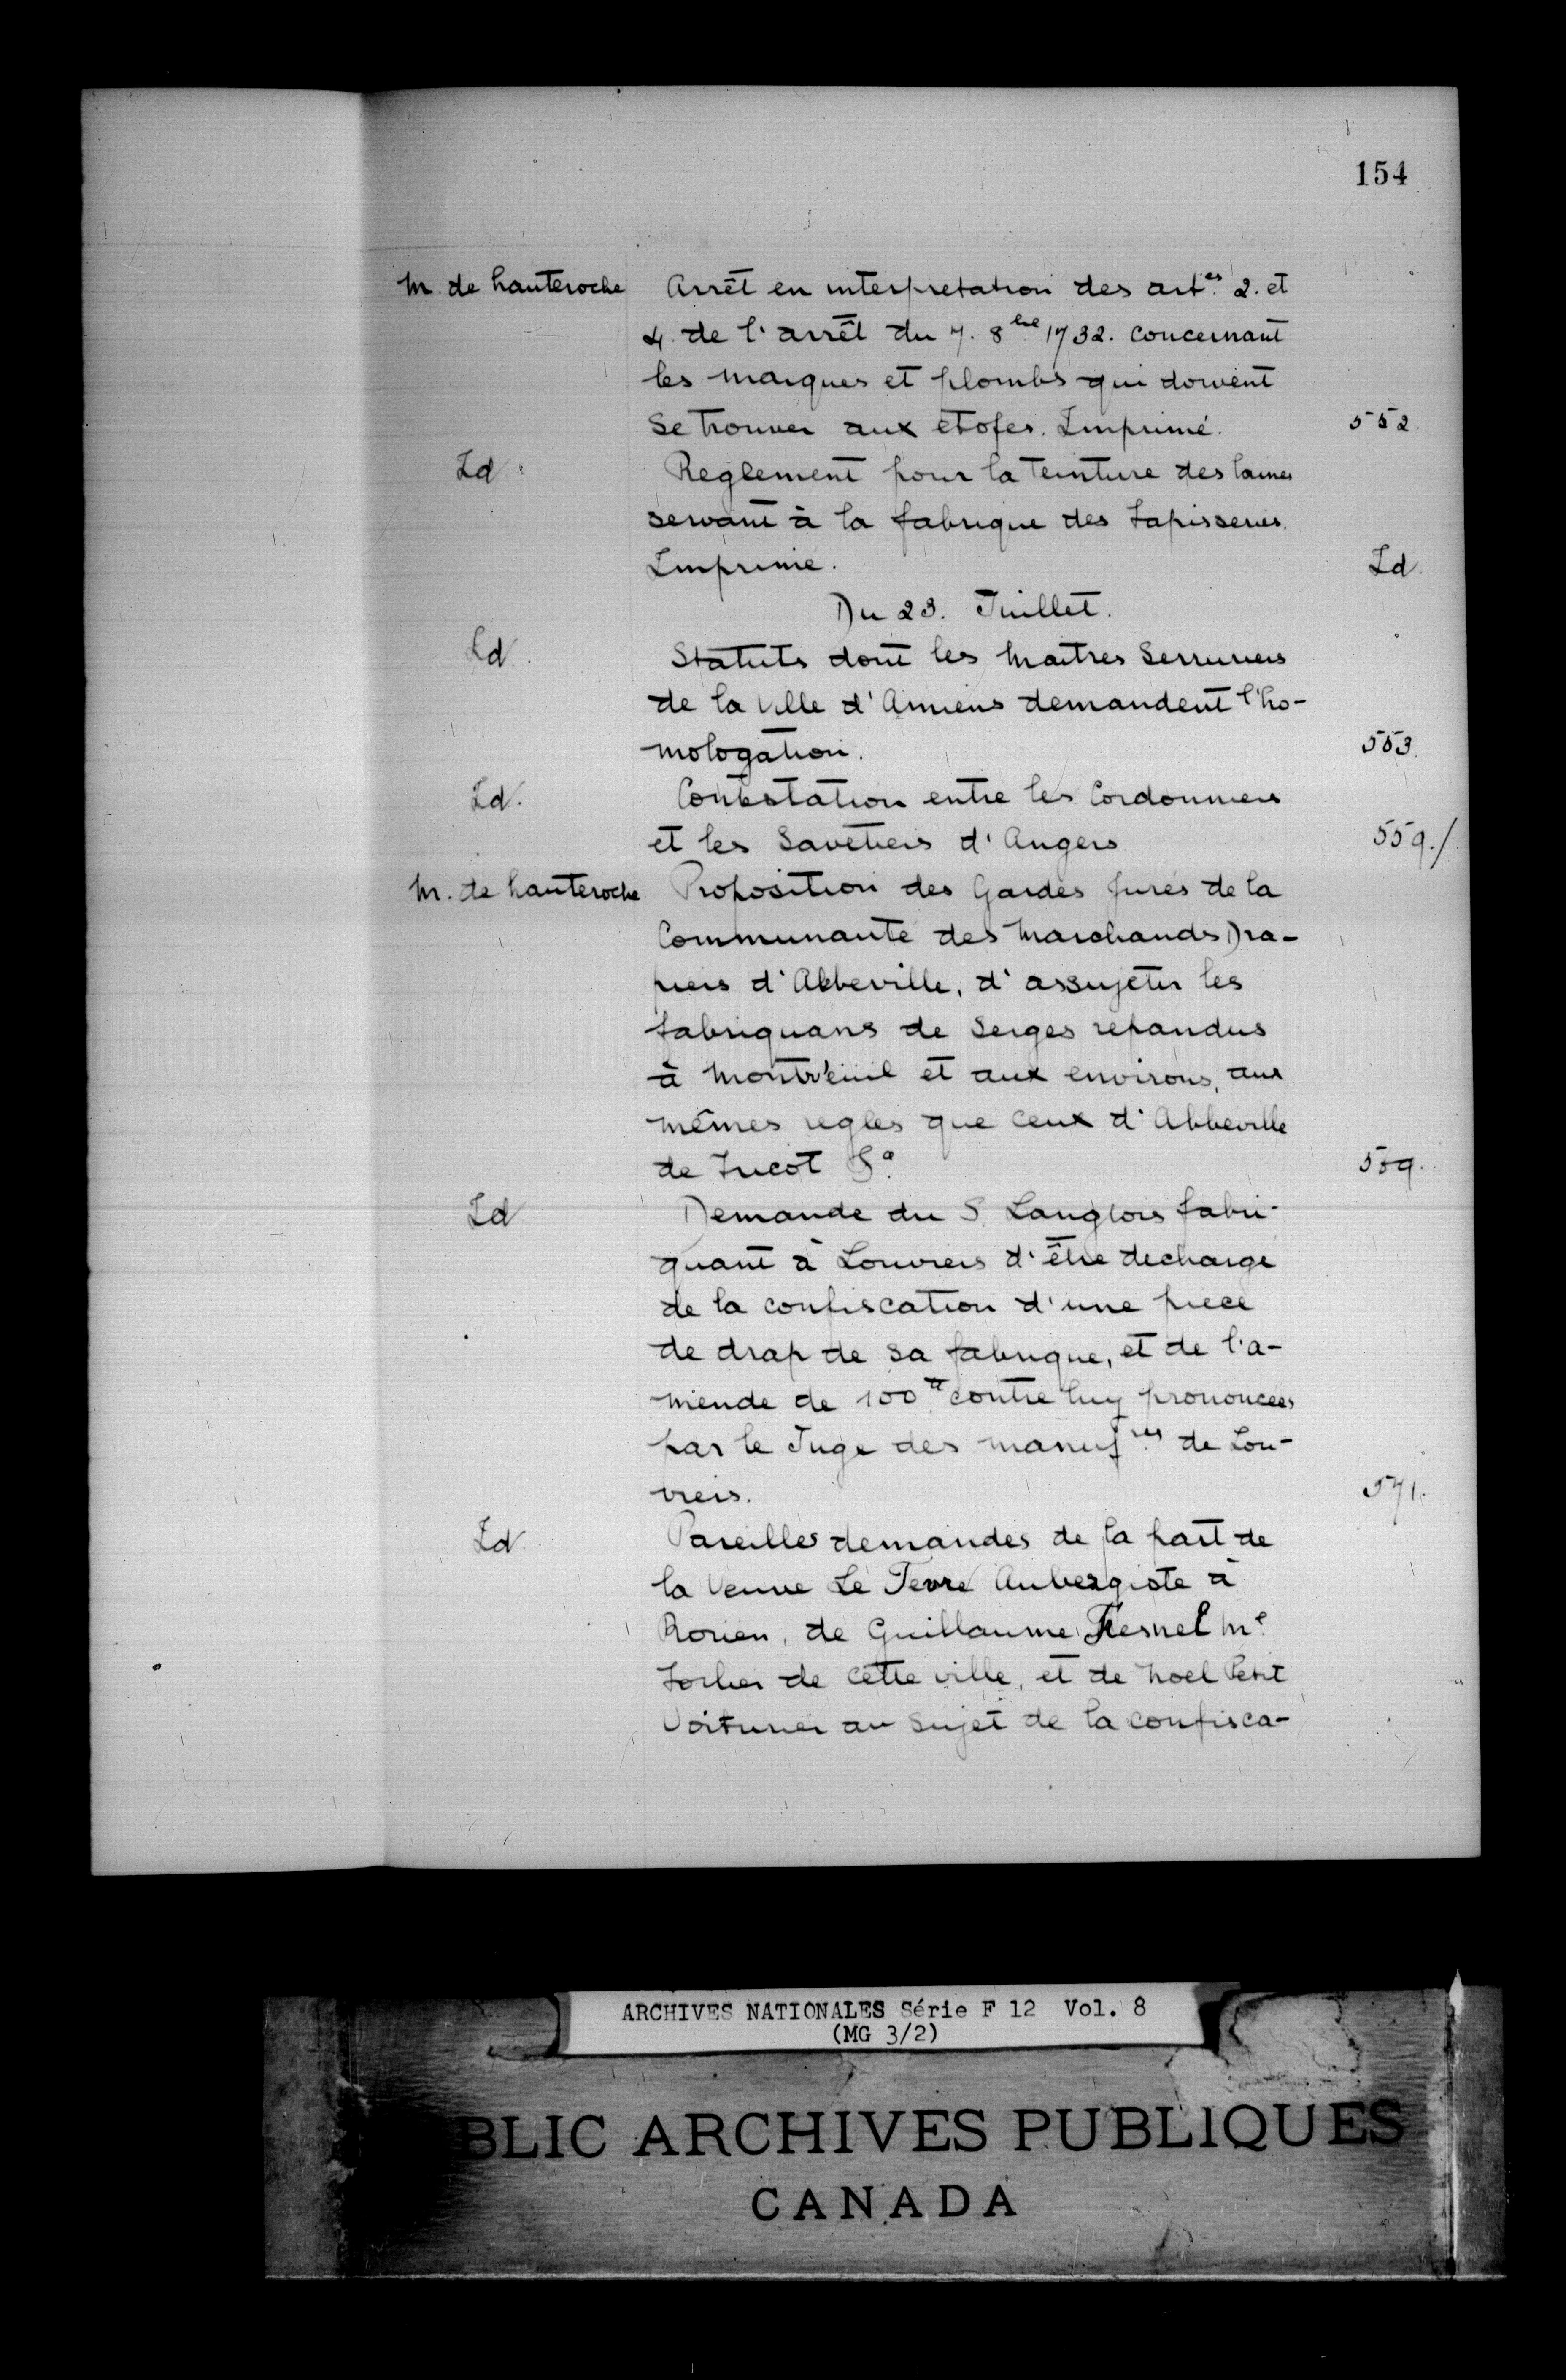 154
M. de hauteroche Arrêt en interpretation des art.es 2. et
4. de l'arrêt du 7. 8bre 1732. concernant
les marques et plombs qui doivent
se trouver aux étofes. Imprimé. 552.
Id. Reglement pour la teinture des laines
servant à la fabrique des tapisseries.
Imprimé. Id.
Du 23. Juillet.
Id. Statuts dont les maitres Serruriers
de la ville d'Amiens demandent l'ho-
mologation. 553.
Id. Contestation entre les Cordonniers
et les Savetiers d'Angers 559./
M. de hauteroche Proposition des Gardes jurés de la
Communauté des Marchands Dra-
piers d'Abbeville, d'assujetir les
fabriquans de Serges repandus
à Montreuil et aux environs, aux
mêmes regles que ceux d'Abbeville
de Tricot 559.
Id. Demande du S. Langlois fabri-
quant à Louviers d'être dechargé
de la confiscation d'une piece
de drap de sa fabrique, et de l'a-
mende de 100tt contre luy prononcées
par le Juge des manuf.res de Lou-
viers. 571.
Id. Pareilles demandes de la part de
la Veuve Le Fevre Aubergiste à
Rouen, de Guillaume Fresnel Me
de cette ville, et de Noel Petit
Voiturier au sujet de la confisca-
ARCHIVES NATIONALES Série F 12 Vol. 8
(MG 3/2)
BLIC ARCHIVES PUBLIQUES
CANADA